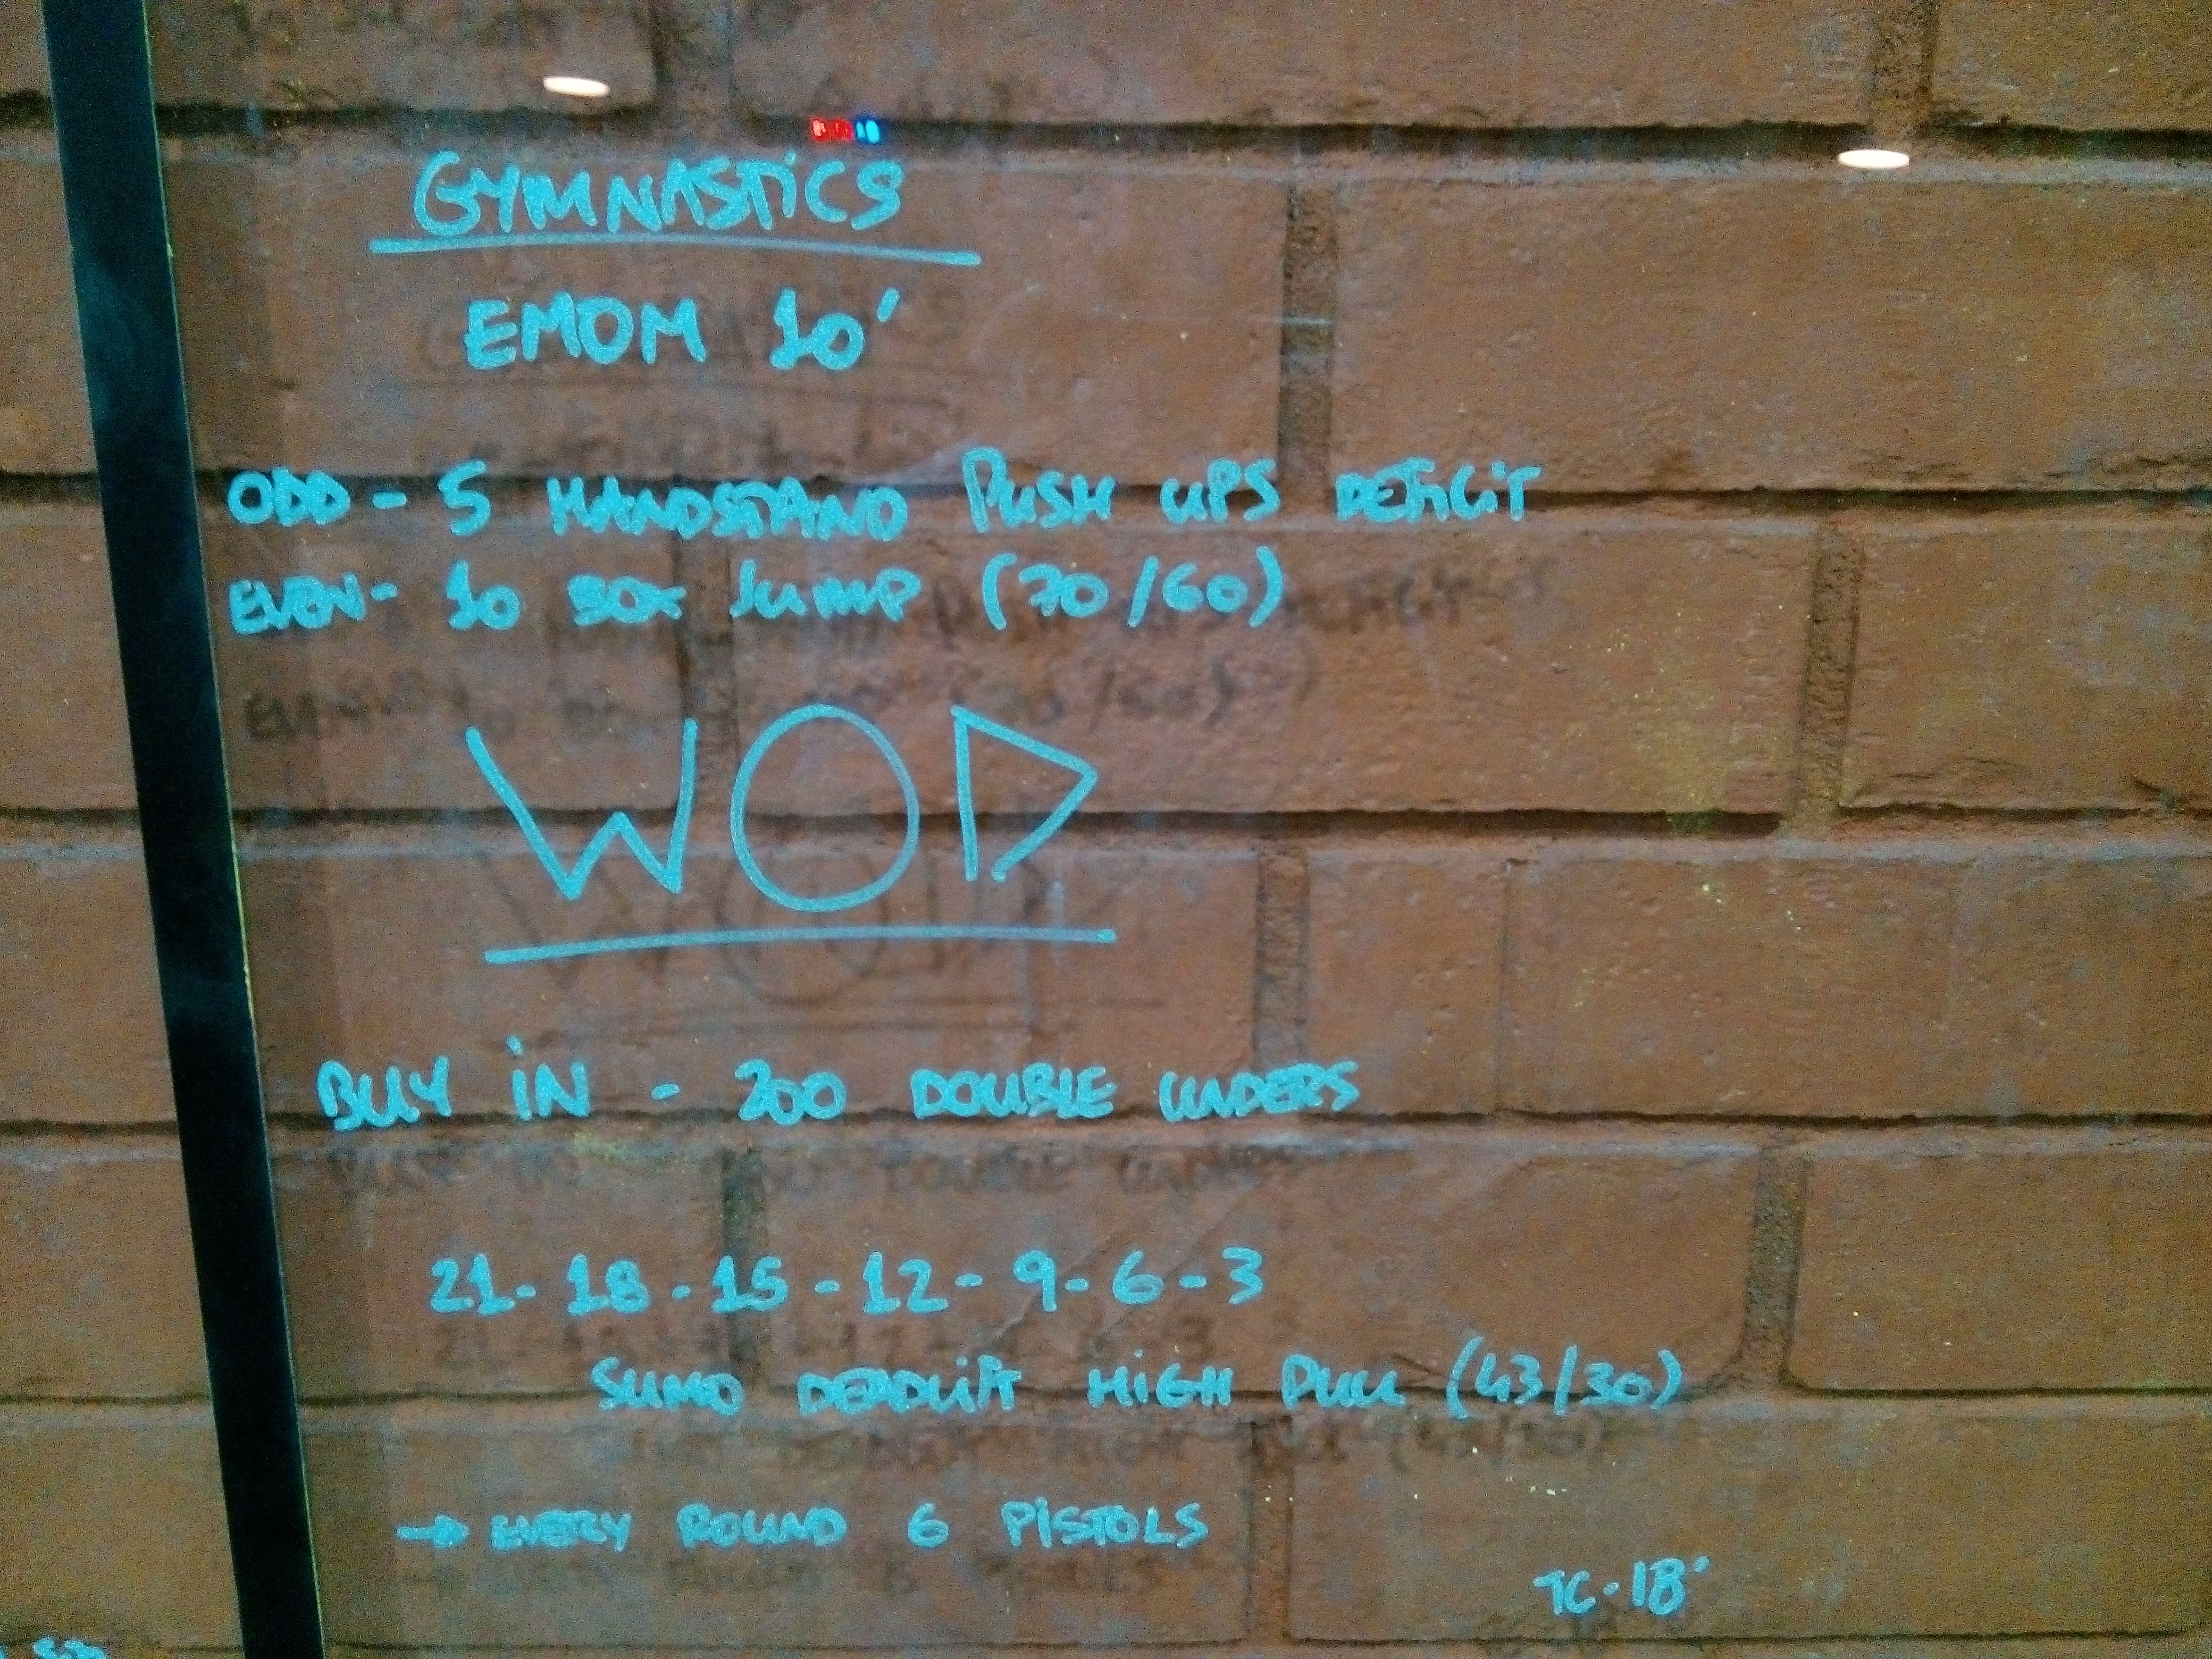 GYMNASTICS
EMOM 10'
ODD - 5 HANDSTAND PUSH UPS DEFICIT
EVEN - 10 BOX JUMP (70/60)
WOD
BUY IN - 200 DOUBLE UNDERS
21 - 18 - 15 - 12 - 9 - 6 - 3
SUMO DEADLIFT HIGH PULL (43/30)
→ EVERY ROUND 6 PISTOLS
TC - 18'